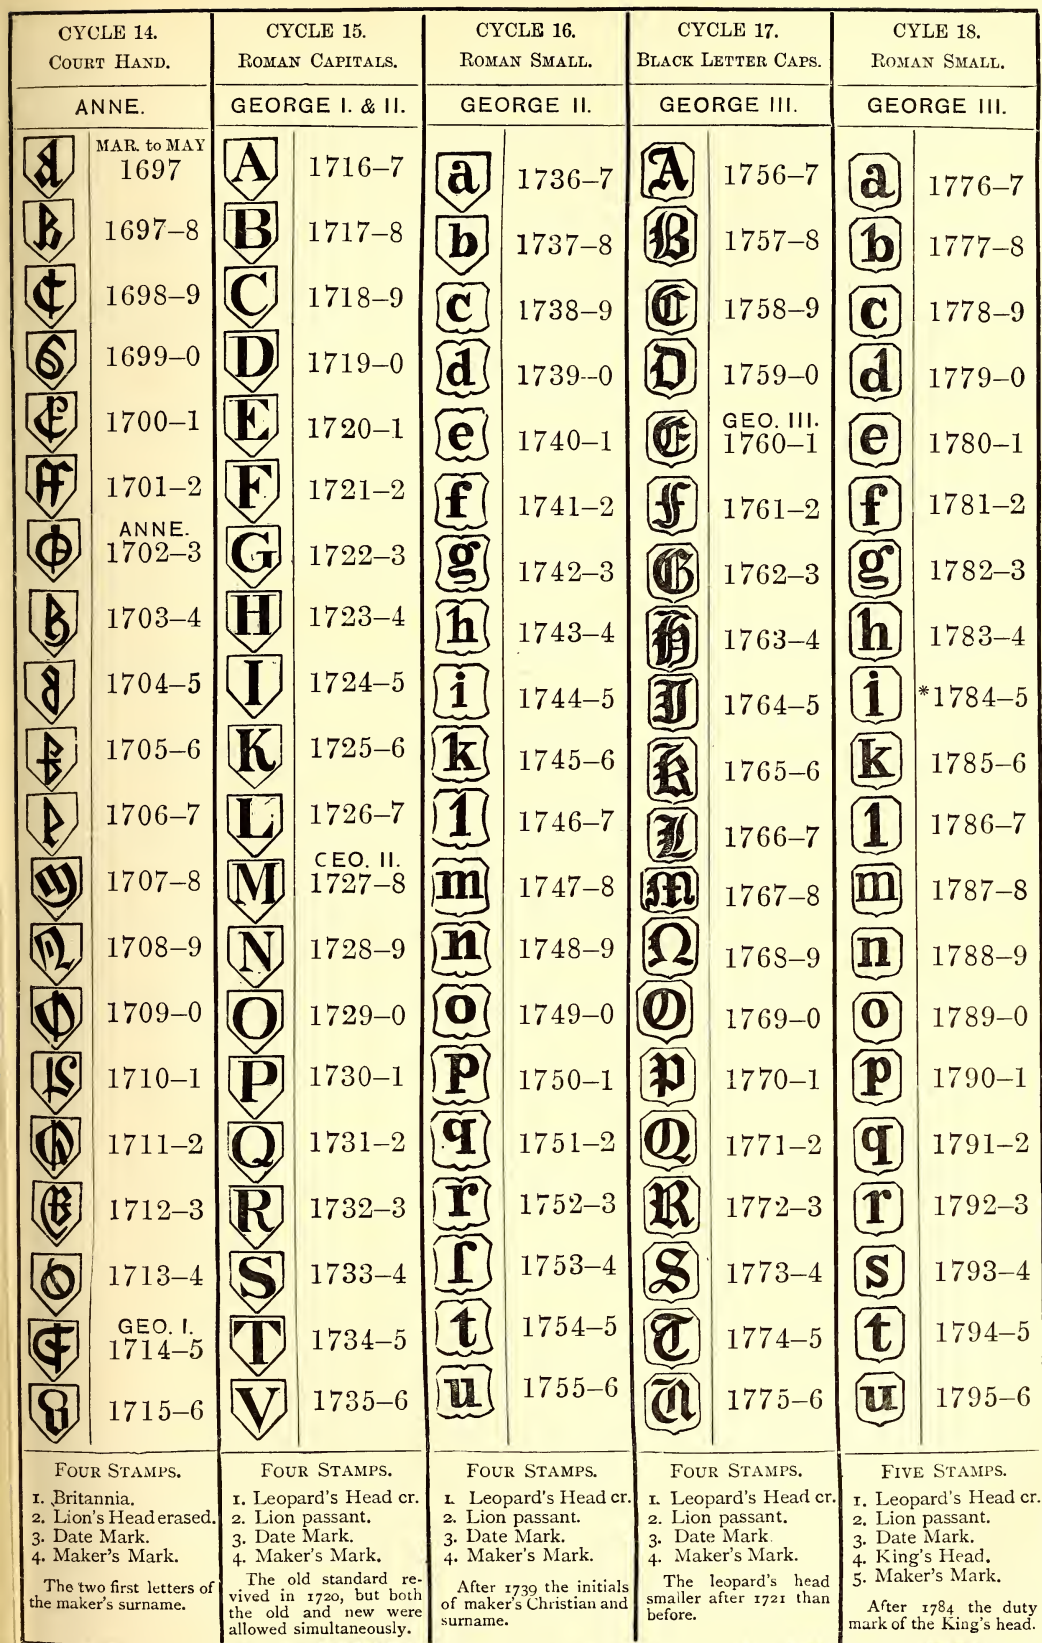 CYCLE 14.
COURT HAND.
ANNE.
MAR. to MAY
1697
1697–8
1698–9
1699–0
1700–1
1701–2
ANNE.
1702–3
1703–4
1704–5
1705–6
1706–7
1707–8
1708–9
1709–0
1710–1
1711–2
1712–3
1713–4
GEO. I.
1714–5
1715–6
FOUR STAMPS.
1. Britannia.
2. Lion's Head erased.
3. Date Mark.
4. Maker's Mark.
The two first letters of
the maker's surname.
CYCLE 15.
ROMAN CAPITALS.
GEORGE I. & II.
A 1716–7
B 1717–8
C 1718–9
D 1719–0
E 1720–1
F 1721–2
G 1722–3
H 1723–4
I 1724–5
K 1725–6
L 1726–7
CEO. II.
M 1727–8
N 1728–9
O 1729–0
P 1730–1
Q 1731–2
R 1732–3
S 1733–4
T 1734–5
V 1735–6
FOUR STAMPS.
1. Leopard's Head cr.
2. Lion passant.
3. Date Mark.
4. Maker's Mark.
The old standard re-
vived in 1720, but both
the old and new were
allowed simultaneously.
CYCLE 16.
ROMAN SMALL.
GEORGE II.
a 1736–7
b 1737–8
c 1738–9
d 1739–0
e 1740–1
f 1741–2
g 1742–3
h 1743–4
i 1744–5
k 1745–6
l 1746–7
m 1747–8
n 1748–9
o 1749–0
p 1750–1
q 1751–2
r 1752–3
ſ 1753–4
t 1754–5
u 1755–6
FOUR STAMPS.
1. Leopard's Head cr.
2. Lion passant.
3. Date Mark.
4. Maker's Mark.
After 1739 the initials
of maker's Christian and
surname.
CYCLE 17.
BLACK LETTER CAPS.
GEORGE III.
A 1756–7
B 1757–8
C 1758–9
D 1759–0
GEO. III.
E 1760–1
F 1761–2
G 1762–3
H 1763–4
I 1764–5
K 1765–6
L 1766–7
M 1767–8
N 1768–9
O 1769–0
P 1770–1
Q 1771–2
R 1772–3
S 1773–4
T 1774–5
U 1775–6
FOUR STAMPS.
1. Leopard's Head cr.
2. Lion passant.
3. Date Mark.
4. Maker's Mark.
The leopard's head
smaller after 1721 than
before.
CYLE 18.
ROMAN SMALL.
GEORGE III.
a 1776–7
b 1777–8
c 1778–9
d 1779–0
e 1780–1
f 1781–2
g 1782–3
h 1783–4
i *1784–5
k 1785–6
l 1786–7
m 1787–8
n 1788–9
o 1789–0
p 1790–1
q 1791–2
r 1792–3
s 1793–4
t 1794–5
u 1795–6
FIVE STAMPS.
1. Leopard's Head cr.
2. Lion passant.
3. Date Mark.
4. King's Head.
5. Maker's Mark.
After 1784 the duty
mark of the King's head.